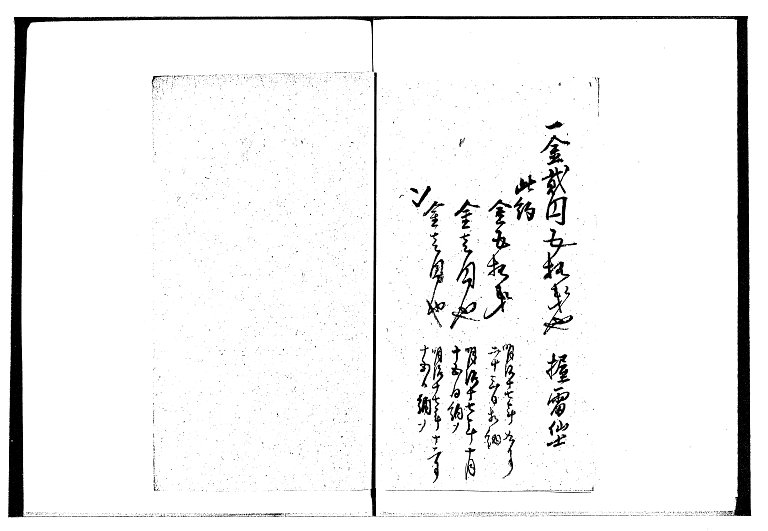 一金貳円五拾銭也 握雷仙士
此納
金五拾銭 明治十七年
二十三日相納
金壱円也 明治十七年十月
十五日納ソ
金壱円也 明治十七年十二月
十五日納ソ